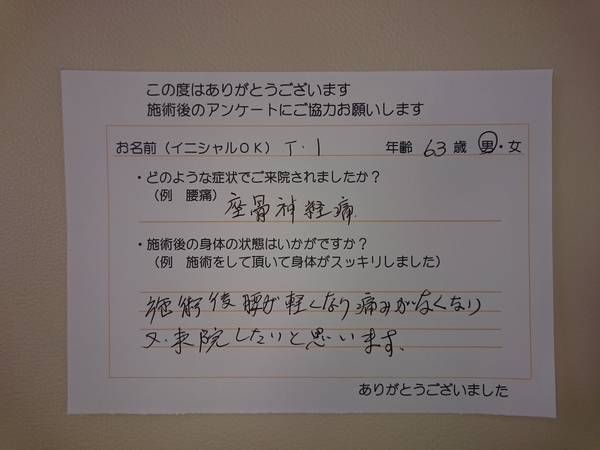 この度はありがとうございます
施術後のアンケートにご協力お願いします
お名前（イニシャルOK） T・I 年齢 63 歳 男・女
・どのような症状でご来院されましたか？
（例 腰痛） 座骨神経痛
・施術後の身体の状態はいかがですか？
（例 施術をして頂いて身体がスッキリしました）
施術後腰が軽くなり痛みがなくなり
又、来院したいと思います。
ありがとうございました